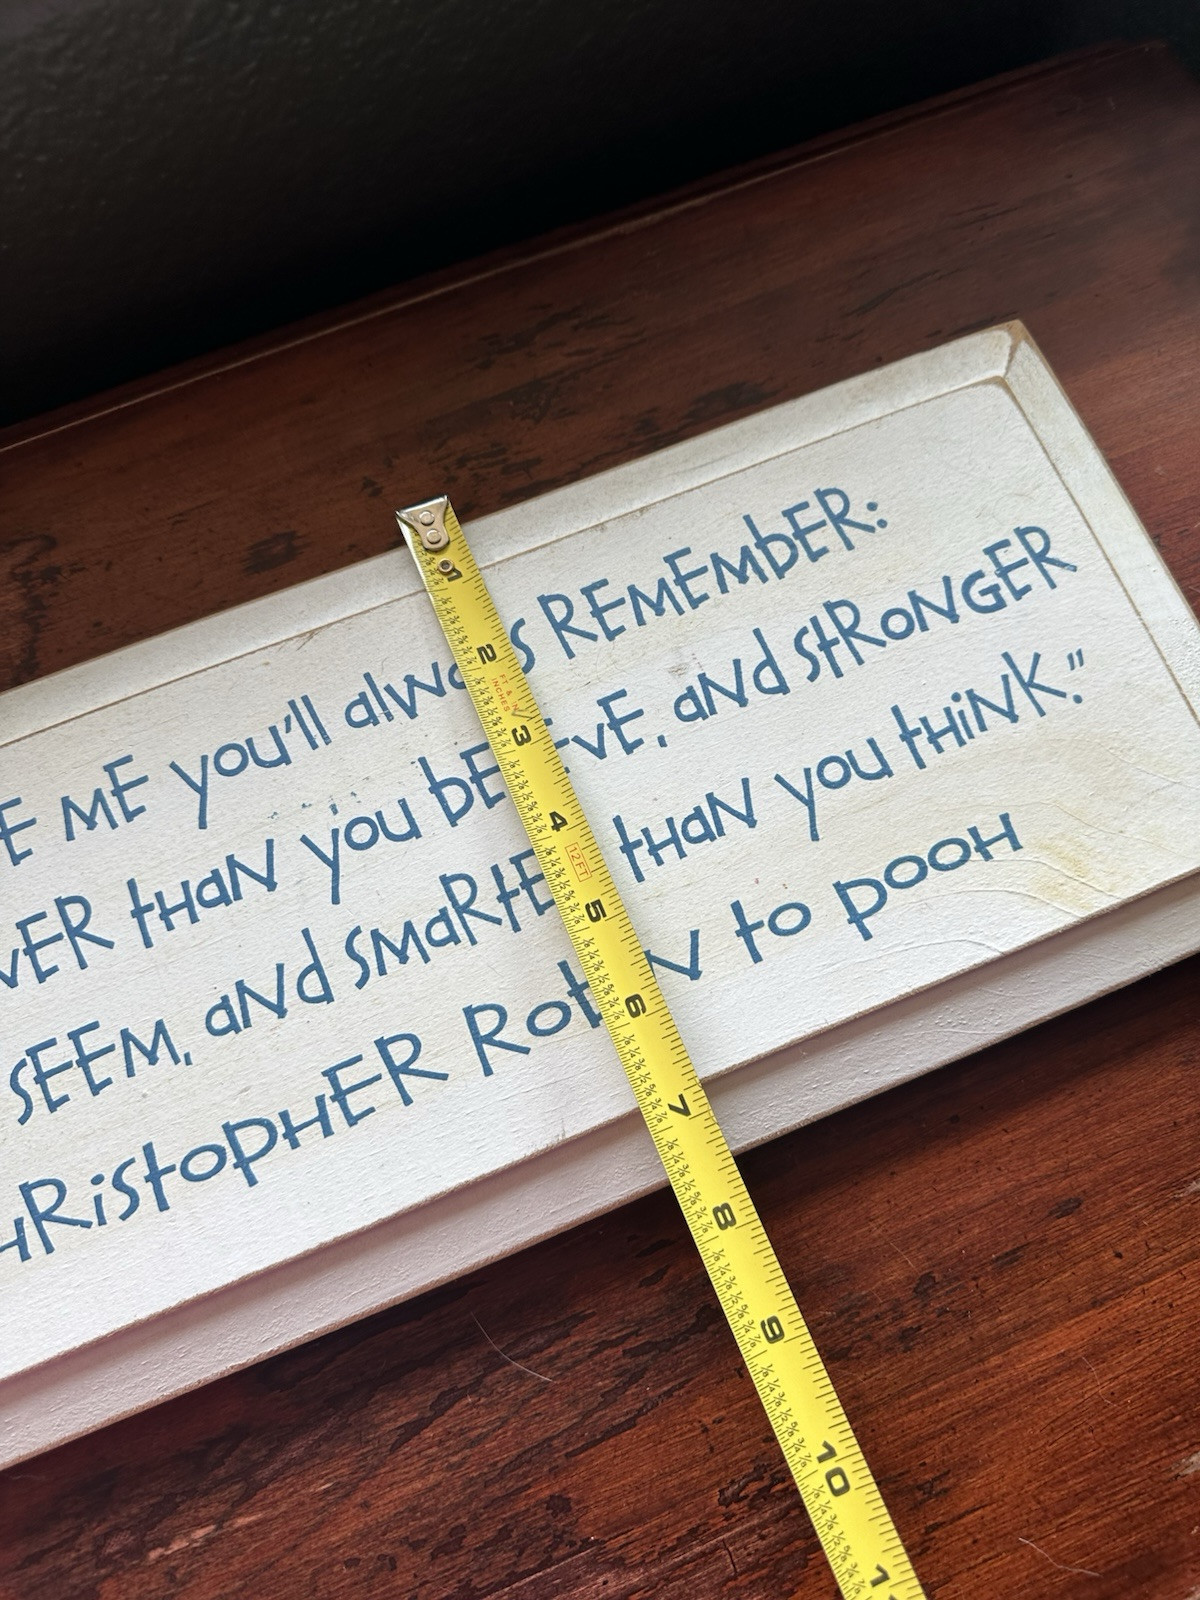 E ME you'll alwa s REMEMbER:
vER tHaN you bE EvE, aNd stRoNGER
sEEM, aNd sMaRtE tHaN you tHiNK."
HRistopHER Rob N to pooH
1
2
FT. & IN
INCHES
3
4
12 FT
5
6
7
8
9
10